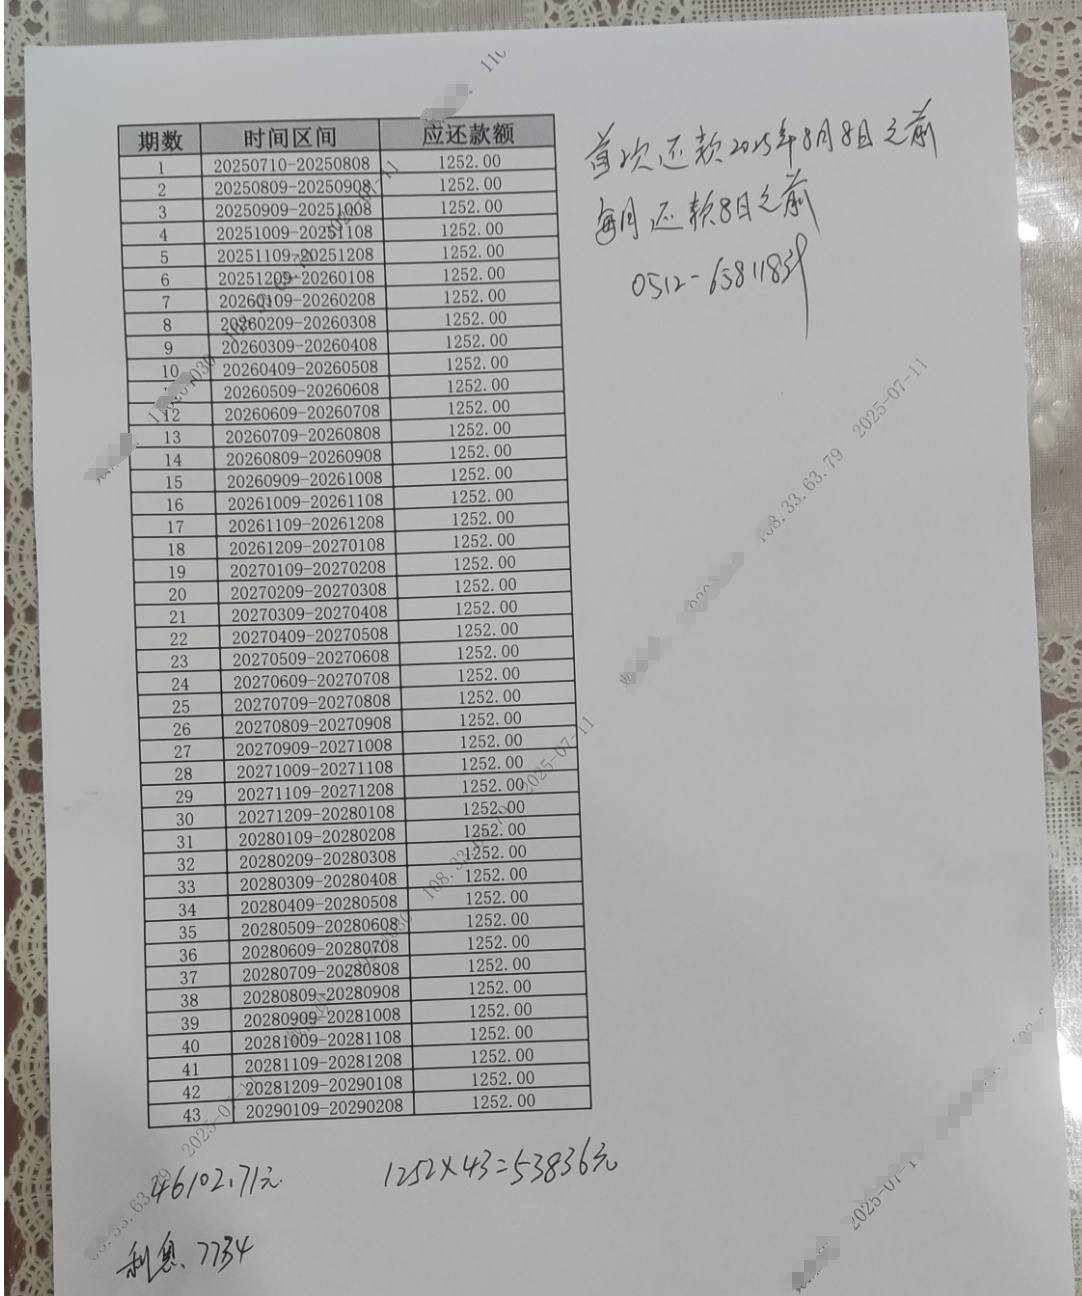 期数 时间区间 应还款额
1 20250710-20250808 1252.00
2 20250809-20250908 1252.00
3 20250909-20251008 1252.00
4 20251009-20251108 1252.00
5 20251109-20251208 1252.00
6 20251209-20260108 1252.00
7 20260109-20260208 1252.00
8 20260209-20260308 1252.00
9 20260309-20260408 1252.00
10 20260409-20260508 1252.00
20260509-20260608 1252.00
12 20260609-20260708 1252.00
13 20260709-20260808 1252.00
14 20260809-20260908 1252.00
15 20260909-20261008 1252.00
16 20261009-20261108 1252.00
17 20261109-20261208 1252.00
18 20261209-20270108 1252.00
19 20270109-20270208 1252.00
20 20270209-20270308 1252.00
21 20270309-20270408 1252.00
22 20270409-20270508 1252.00
23 20270509-20270608 1252.00
24 20270609-20270708 1252.00
25 20270709-20270808 1252.00
26 20270809-20270908 1252.00
27 20270909-20271008 1252.00
28 20271009-20271108 1252.00
29 20271109-20271208 1252.00
30 20271209-20280108 1252.00
31 20280109-20280208 1252.00
32 20280209-20280308 1252.00
33 20280309-20280408 1252.00
34 20280409-20280508 1252.00
35 20280509-20280608 1252.00
36 20280609-20280708 1252.00
37 20280709-20280808 1252.00
38 20280809-20280908 1252.00
39 20280909-20281008 1252.00
40 20281009-20281108 1252.00
41 20281109-20281208 1252.00
42 20281209-20290108 1252.00
43 20290109-20290208 1252.00
首次还款2025年8月8日之前
每月还款8日之前
108.33.63.79 2025-07-11
2025-07-11
46102.71元 1252×43=53836元
利息、7734